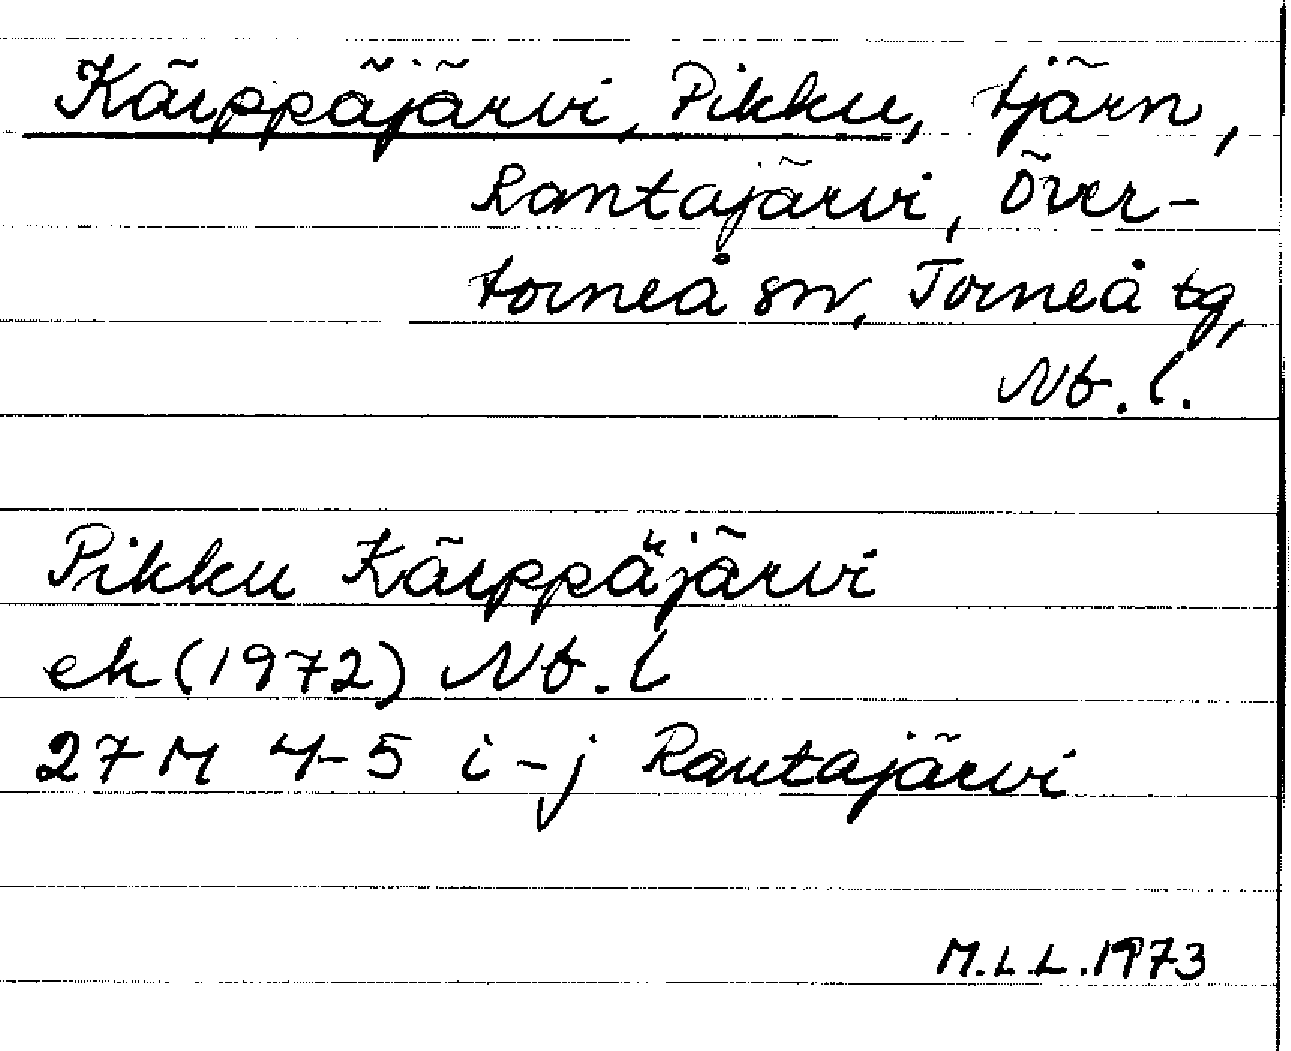 Kärppäjärvi, Pikku, tjärn,
Rantajärvi, Över-
torneå sn, Torneå tg,
Nb. l.
Pikku Kärppäjärvi
ek (1972) Nb. l
27 M 4-5 i-j Rantajärvi
M.L.L. 1973